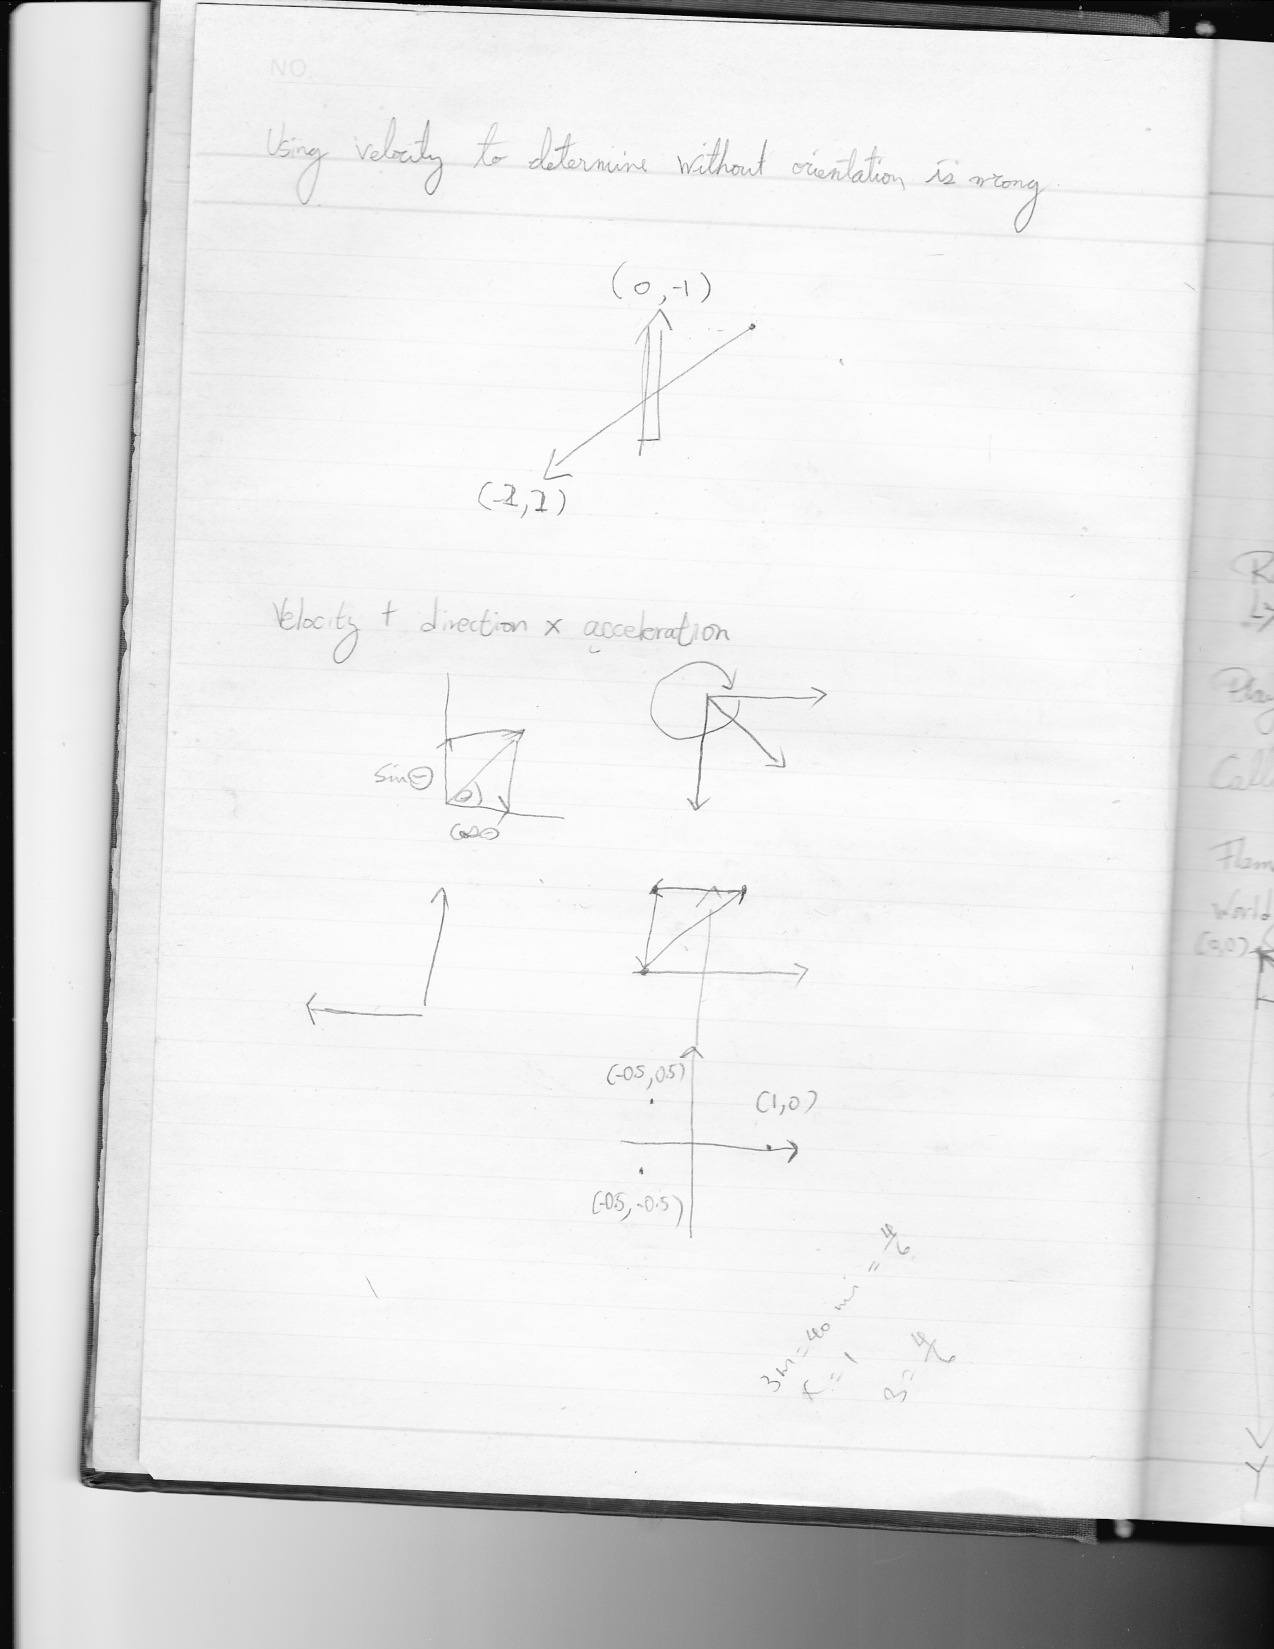 NO.
Using velocity to determine without orientation is wrong
(0,-1)
(-1,1)
Velocity + direction x acceleration
sinθ
θ
cosθ
(-0.5,0.5)
(1,0)
(-0.5,-0.5)
x = 1
Flam
World
(0,0)
Y